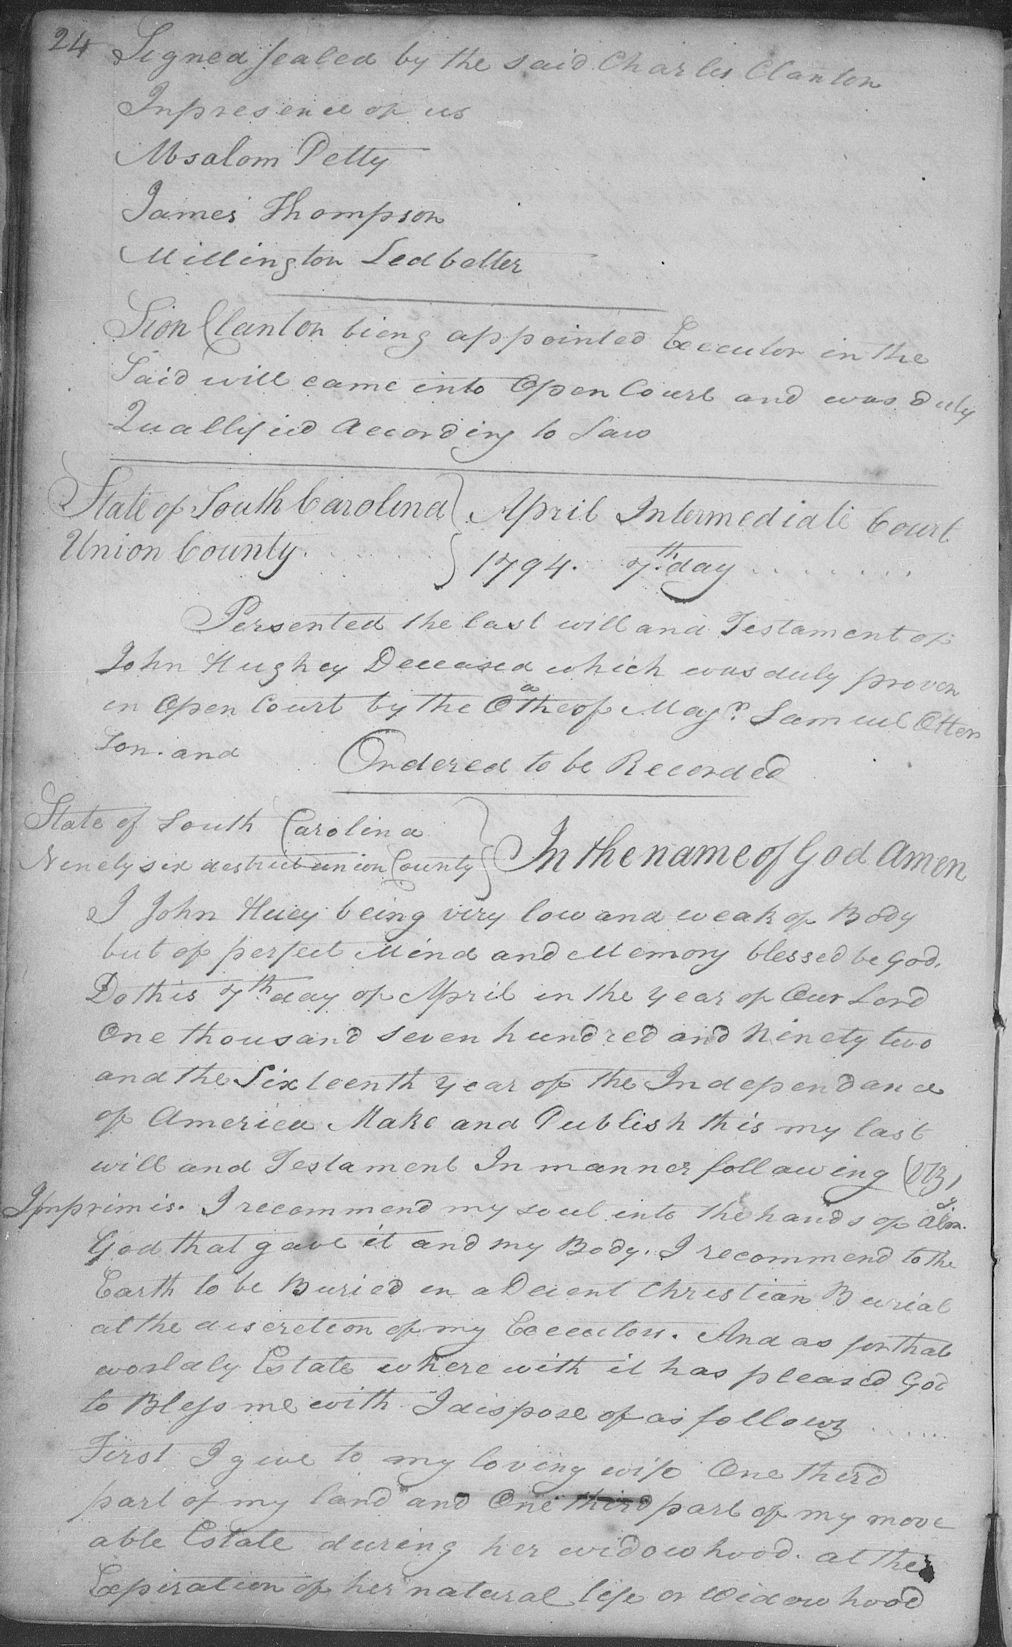 24
Signed sealed by the said Charles Clanton
Inpresence of us
Absalom Petty
James Thompson
Millington Ledbetter
Sion Clanton bieng appointed Executor in the
Said will came into Open Court and was duly
Quallifyed According to Law
State of South Carolina } April Intermediate Court
Union County. . . . . . . } 1794. 7th. day . . . . . . . .
Persented the last will and Testament of
John Hughey Deceased which was duly proven
in Open Court by the Oathe of Majr. Samuel Otter
son. and Ordered to be Recorded
State of South Carolina } In the name of God Amen
Ninety six destrict union County }
I John Huey being very low and weak of Body
but of perfect Mind and Memory blessed be God.
Do this 7th day of April in the year of Our Lord
One thousand seven hundred and Ninety two
and the Sixteenth year of the Independance
of America Make and Publish this my last
will and Testament In manner following (viz)
Imprimis. I recommend my soul into the hands of Almy.
God that gave it and my Body. I recommend to the
Earth to be Buried in a Decent Christian Burial
at the discretion of my Executors. And as for that
worldly Estate where with it has pleased God
to Bless me with I dispose of as follows . . . . . .
First I give to my loving wife One third
part of my land and One third part of my move
able Estate during her widowhood. at the
Expiration of her natural life or Widowhood